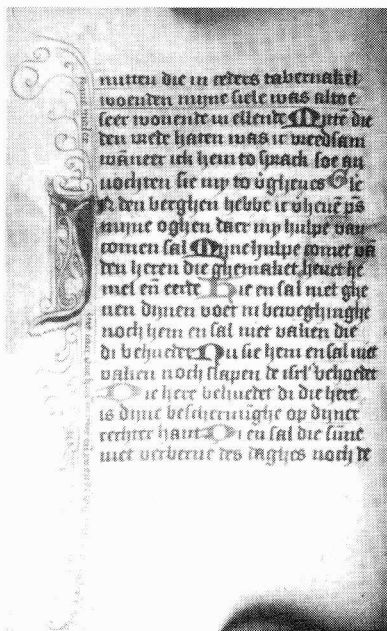 mitten die in ceders tabernakel
woenden myne siele was altoe
seer wonende in ellende Mitte die
den vrede haten was ic vredsam
wāneer ick hem to sprack soe an
vochten sie my to vghenes Glie
In den berghen hebbe ic vheuē ps
mijne oghen daer my hulpe van
comen sal Myne hulpe comet vā
den heren die ghemaket heuet he
mel eñ eerde Hie en sal niet ghe
uen dynen voet in beweghinghe
noch hem en sal niet vaken die
di behuedet Nu sie hem en sal niet
vaken noch slapen de isrl' behoedet
Die here behuedet di die here
is dyne beschermīghe op dyner
rechter hant Di en sal die sūne
niet verberne des daghes noch de